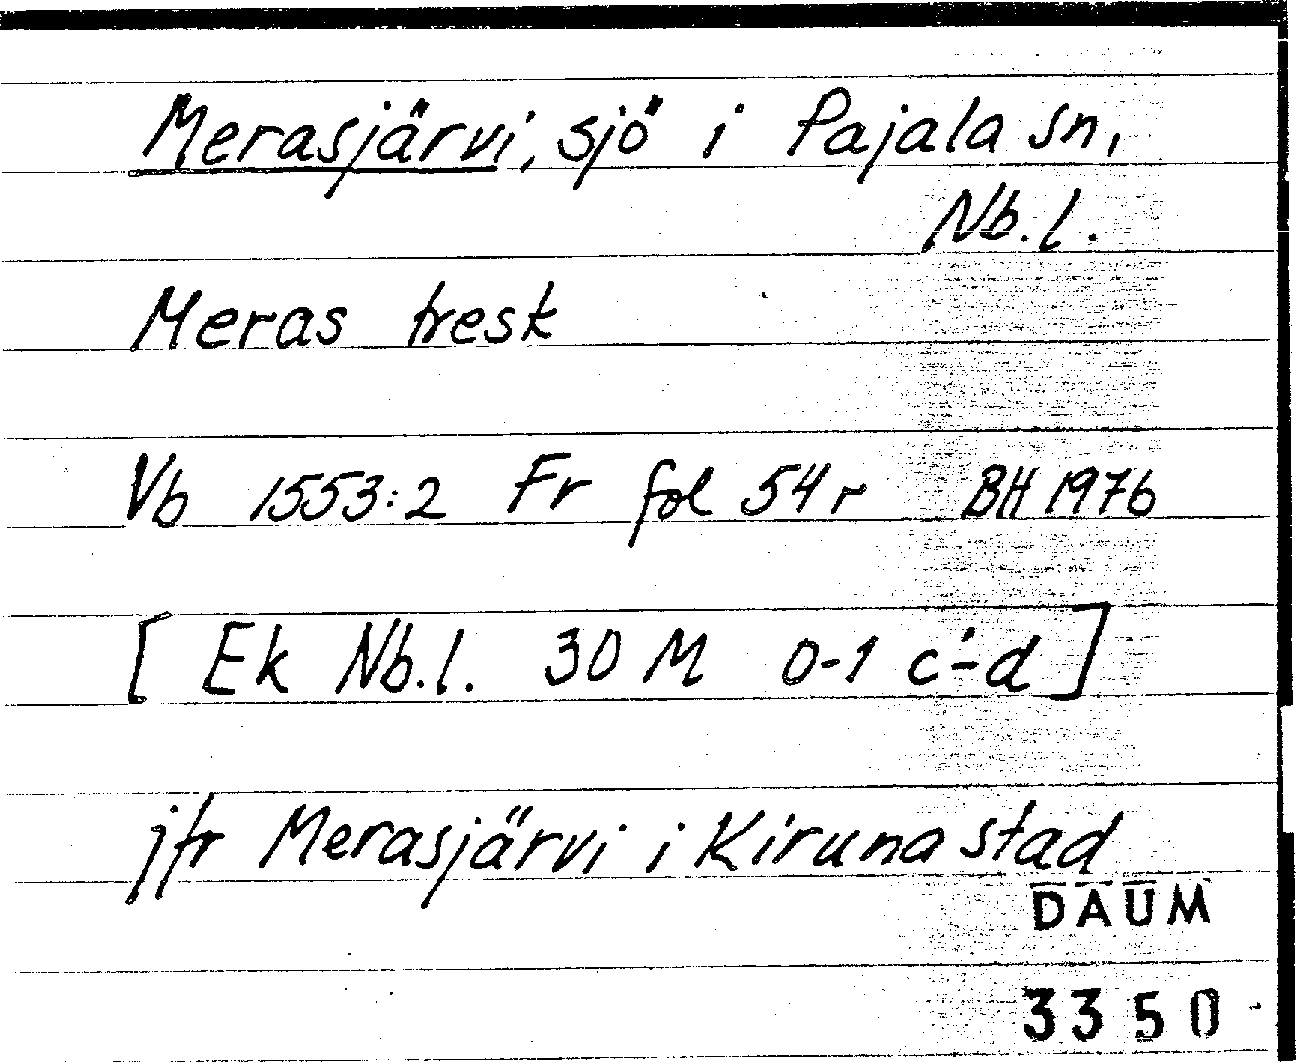 Merasjärvi, sjö i Pajala sn,
Nb.l.
Meras tresk
Vb 1553:2 Fr fol 54 r BH 1976
[ Ek Nb.l. 30 M 0-1 c-d ]
jfr Merasjärvi i Kiruna stad
DAUM
3350